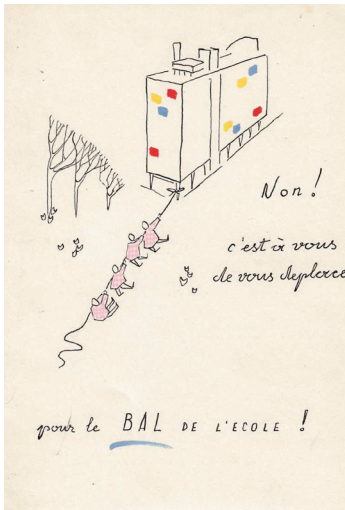 Non !
c'est à vous
de vous deplacer
pour le BAL DE L'ECOLE !